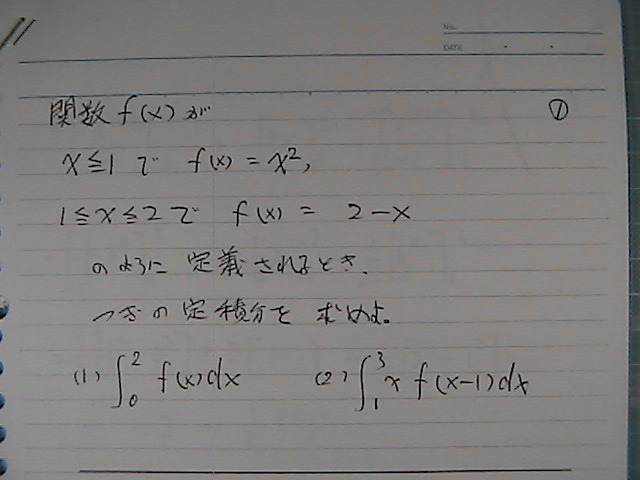 No.
DATE
関数 f(x) が
①
x≦1 で f(x) = x²,
1≦x≦2で f(x) = 2-x
のように 定義されるとき.
つぎの定積分を 求めよ。
(1) ∫₀² f(x)dx (2) ∫₁³ x f(x-1)dx